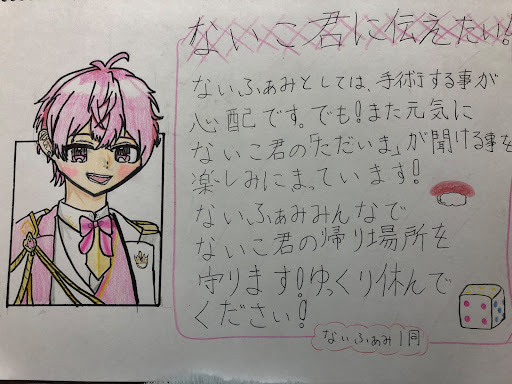 ないこ君に伝えたい!
ないふぁみとしては、手術する事が
心配です。でも!また元気に
ないこ君の「ただいま」が聞ける事を
楽しみにまっています!
ないふぁみみんなで
ないこ君の帰り場所を
守ります!ゆっくり休んで
ください!
ないふぁみ1同